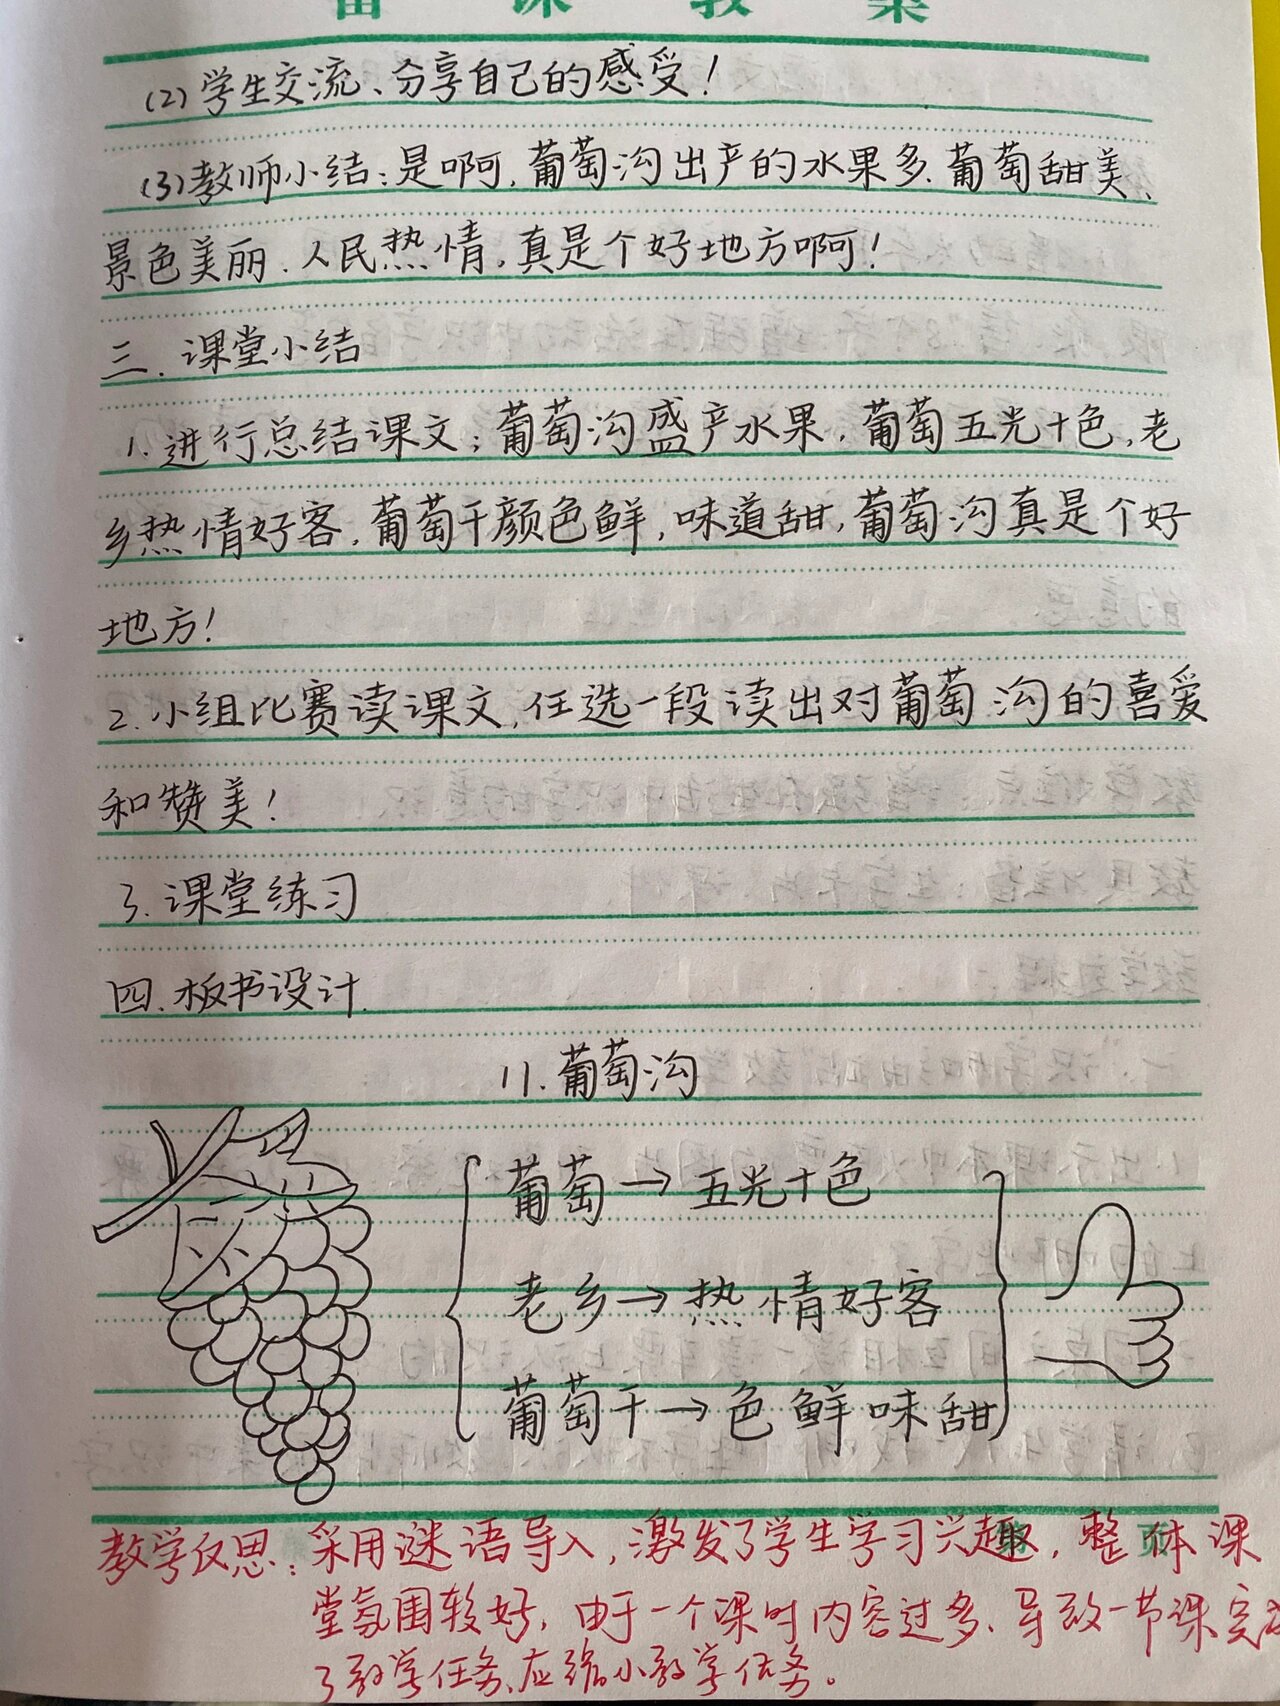 备课教案
(2)学生交流、分享自己的感受!
(3)教师小结:是啊,葡萄沟出产的水果多、葡萄甜美、
景色美丽、人民热情,真是个好地方啊!
三、课堂小结
1.进行总结课文:葡萄沟盛产水果,葡萄五光十色,老
乡热情好客,葡萄干颜色鲜,味道甜,葡萄沟真是个好
地方!
2.小组比赛读课文,任选一段读出对葡萄沟的喜爱
和赞美!
3.课堂练习
四、板书设计
11.葡萄沟
葡萄→五光十色
老乡→热情好客
葡萄干→色鲜味甜
教学反思:采用谜语导入,激发了学生学习兴趣,整体课
堂氛围较好,由于一个课时内容过多、导致一节课完成
了教学任务、应缩小教学任务。